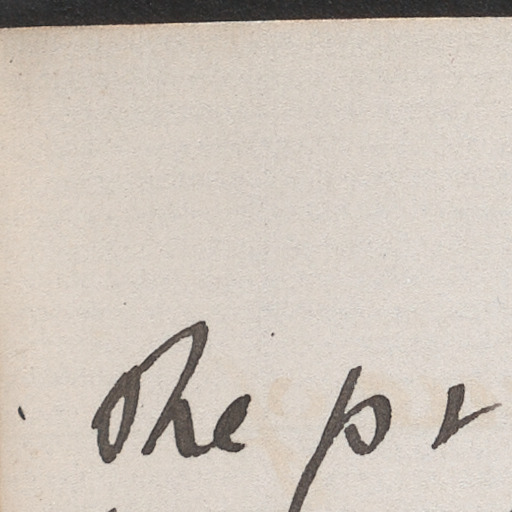 The pr